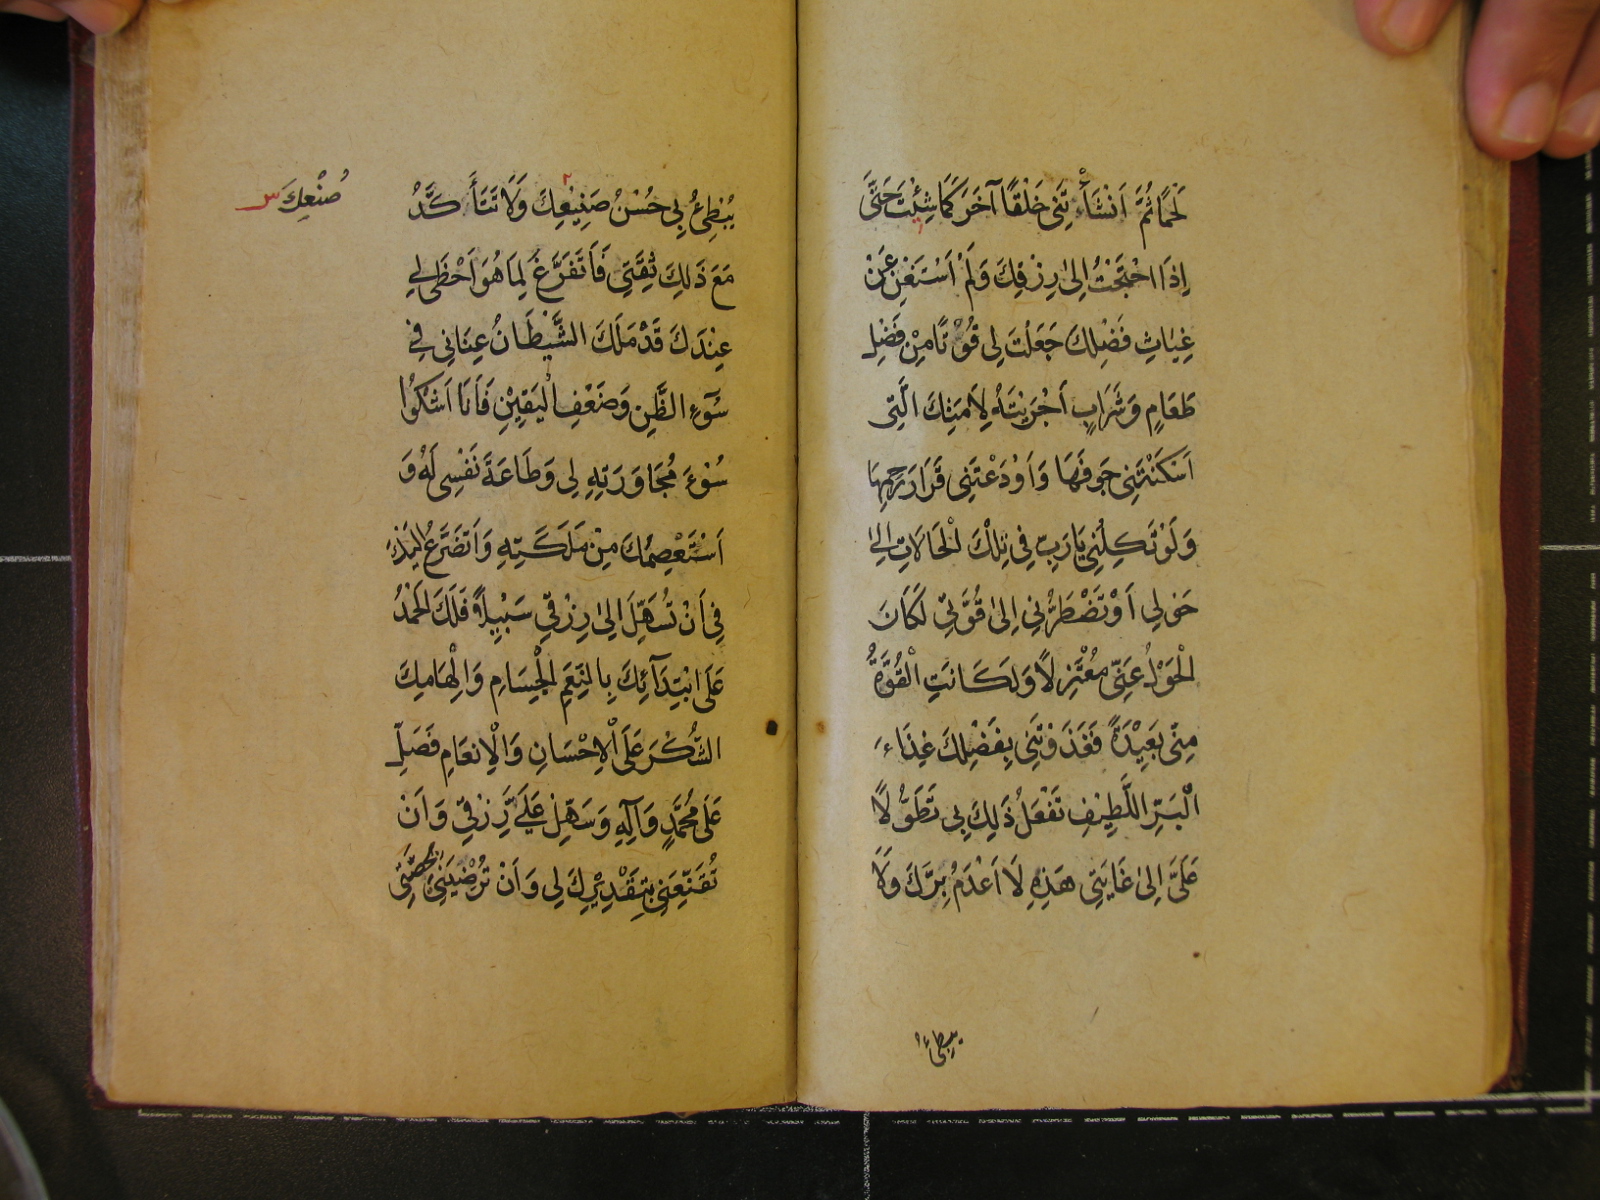 لَحْمًا ثُمَّ اَنْشَأْتَنِي خَلْقًا آخَرَ كَمَا شِئْتَ حَتَّى
اِذَا احْتَجْتُ اِلىٰ رِزْقِكَ وَلَمْ اَسْتَغْنِ عَنْ
غِيَاثِ فَضْلِكَ جَعَلْتَ لِى قُوْتًا مِنْ فَضْلِ
طَعَامٍ وَشَرَابٍ اَجْرَيْتَهُ لِاَمَتِكَ الَّتِى
اَسْكَنْتَنِى جَوفَهَا وَاَوْدَعْتَنِى قَرَارَ رَحِمِهَا
وَلَوْ تَكِلْنِى يَا رَبِّ فِى تِلْكَ الْحَالَاتِ اِلىٰ
حَوْلِى اَوْ تَضْطَرُّنِى اِلىٰ قُوَّتِى لَكَانَ
الْحَوْلُ عَنِّى مُعْتَزِلًا وَلَكَانَتِ الْقُوَّةُ
مِنّى بَعِيْدَةً فَغَذَوْتَنِى بِفَضْلِكَ غِذَاءَ
الْبَرِّ اللَّطِيْفِ تَفْعَلُ ذٰلِكَ بِى تَطَوُّلًا
عَلَىَّ اِلىٰ غَايَتِى هٰذِهِ لَا اَعْدَمُ بِرَّكَ وَلَا
يبطئ
يُبْطِئُ بِى حُسْنُ صَنِيْعِكَ وَلَا تَتَأَكَّدُ
صُنْعِكَ س
مَعَ ذٰلِكَ ثِقَتِى فَاَتَفَرَّغَ لِمَا هُوَ اَحْظٰى لِى
عِنْدَكَ قَدْ مَلَكَ الشَّيْطَانُ عِنَانِى فِى
سُوْءِ الظَّنِ وَضَعْفِ الْيَقِيْنِ فَاَنَا اَشْكُوْا
سُوْءَ مُجَاوَرَتِهِ لِى وَطَاعَةَ نَفْسِى لَهُ وَ
اَسْتَعْصِمُكَ مِنْ مَلَكَتِهِ وَاَتَضَرَّعُ اِلَيْكَ
فِى اَنْ تُسَهِّلَ اِلىٰ رِزْقِى سَبِيْلًا فَلَكَ الْحَمْدُ
عَلَى ابْتِدَآئِكَ بِالنِّعَمِ الْجِسَامِ وَاِلْهَامِكَ
الشُّكْرَ عَلَى الْاِحْسَانِ وَالْاِنْعَامِ فَصَلِّ
عَلَى مُحَمَّدٍ وَآلِهِ وَسَهِّلْ عَلَىَّ رِزْقِى وَاَنْ
تُقَنِّعَنِى بِتَقْدِيْرِكَ لِى وَاَنْ تُرْضِيَنِىْ بِحِصَّتِى